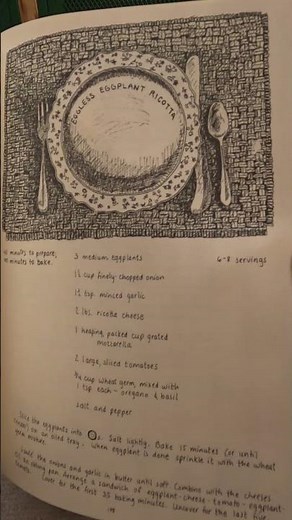 EGGLESS EGGPLANT RICOTTA
minutes to prepare;
minutes to bake.
3 medium eggplants
6-8 servings
1½ cup finely-chopped onion
1½ tsp. minced garlic
2 lbs. ricotta cheese
1 heaping, packed cup grated
mozzarella
2 large, sliced tomatoes
¾ cup wheat germ, mixed with
1 tsp. each - oregano & basil
salt and pepper
the eggplants into Salt lightly. Bake 15 minutes (or until
on an oiled tray. When eggplant is done sprinkle it with the wheat
germ mixture.
the onions and garlic in butter until soft. Combine with the cheeses.
baking pan, arrange a sandwich of eggplant-cheese-tomato-eggplant-
Cover for the first 30 baking minutes. Uncover for the last five